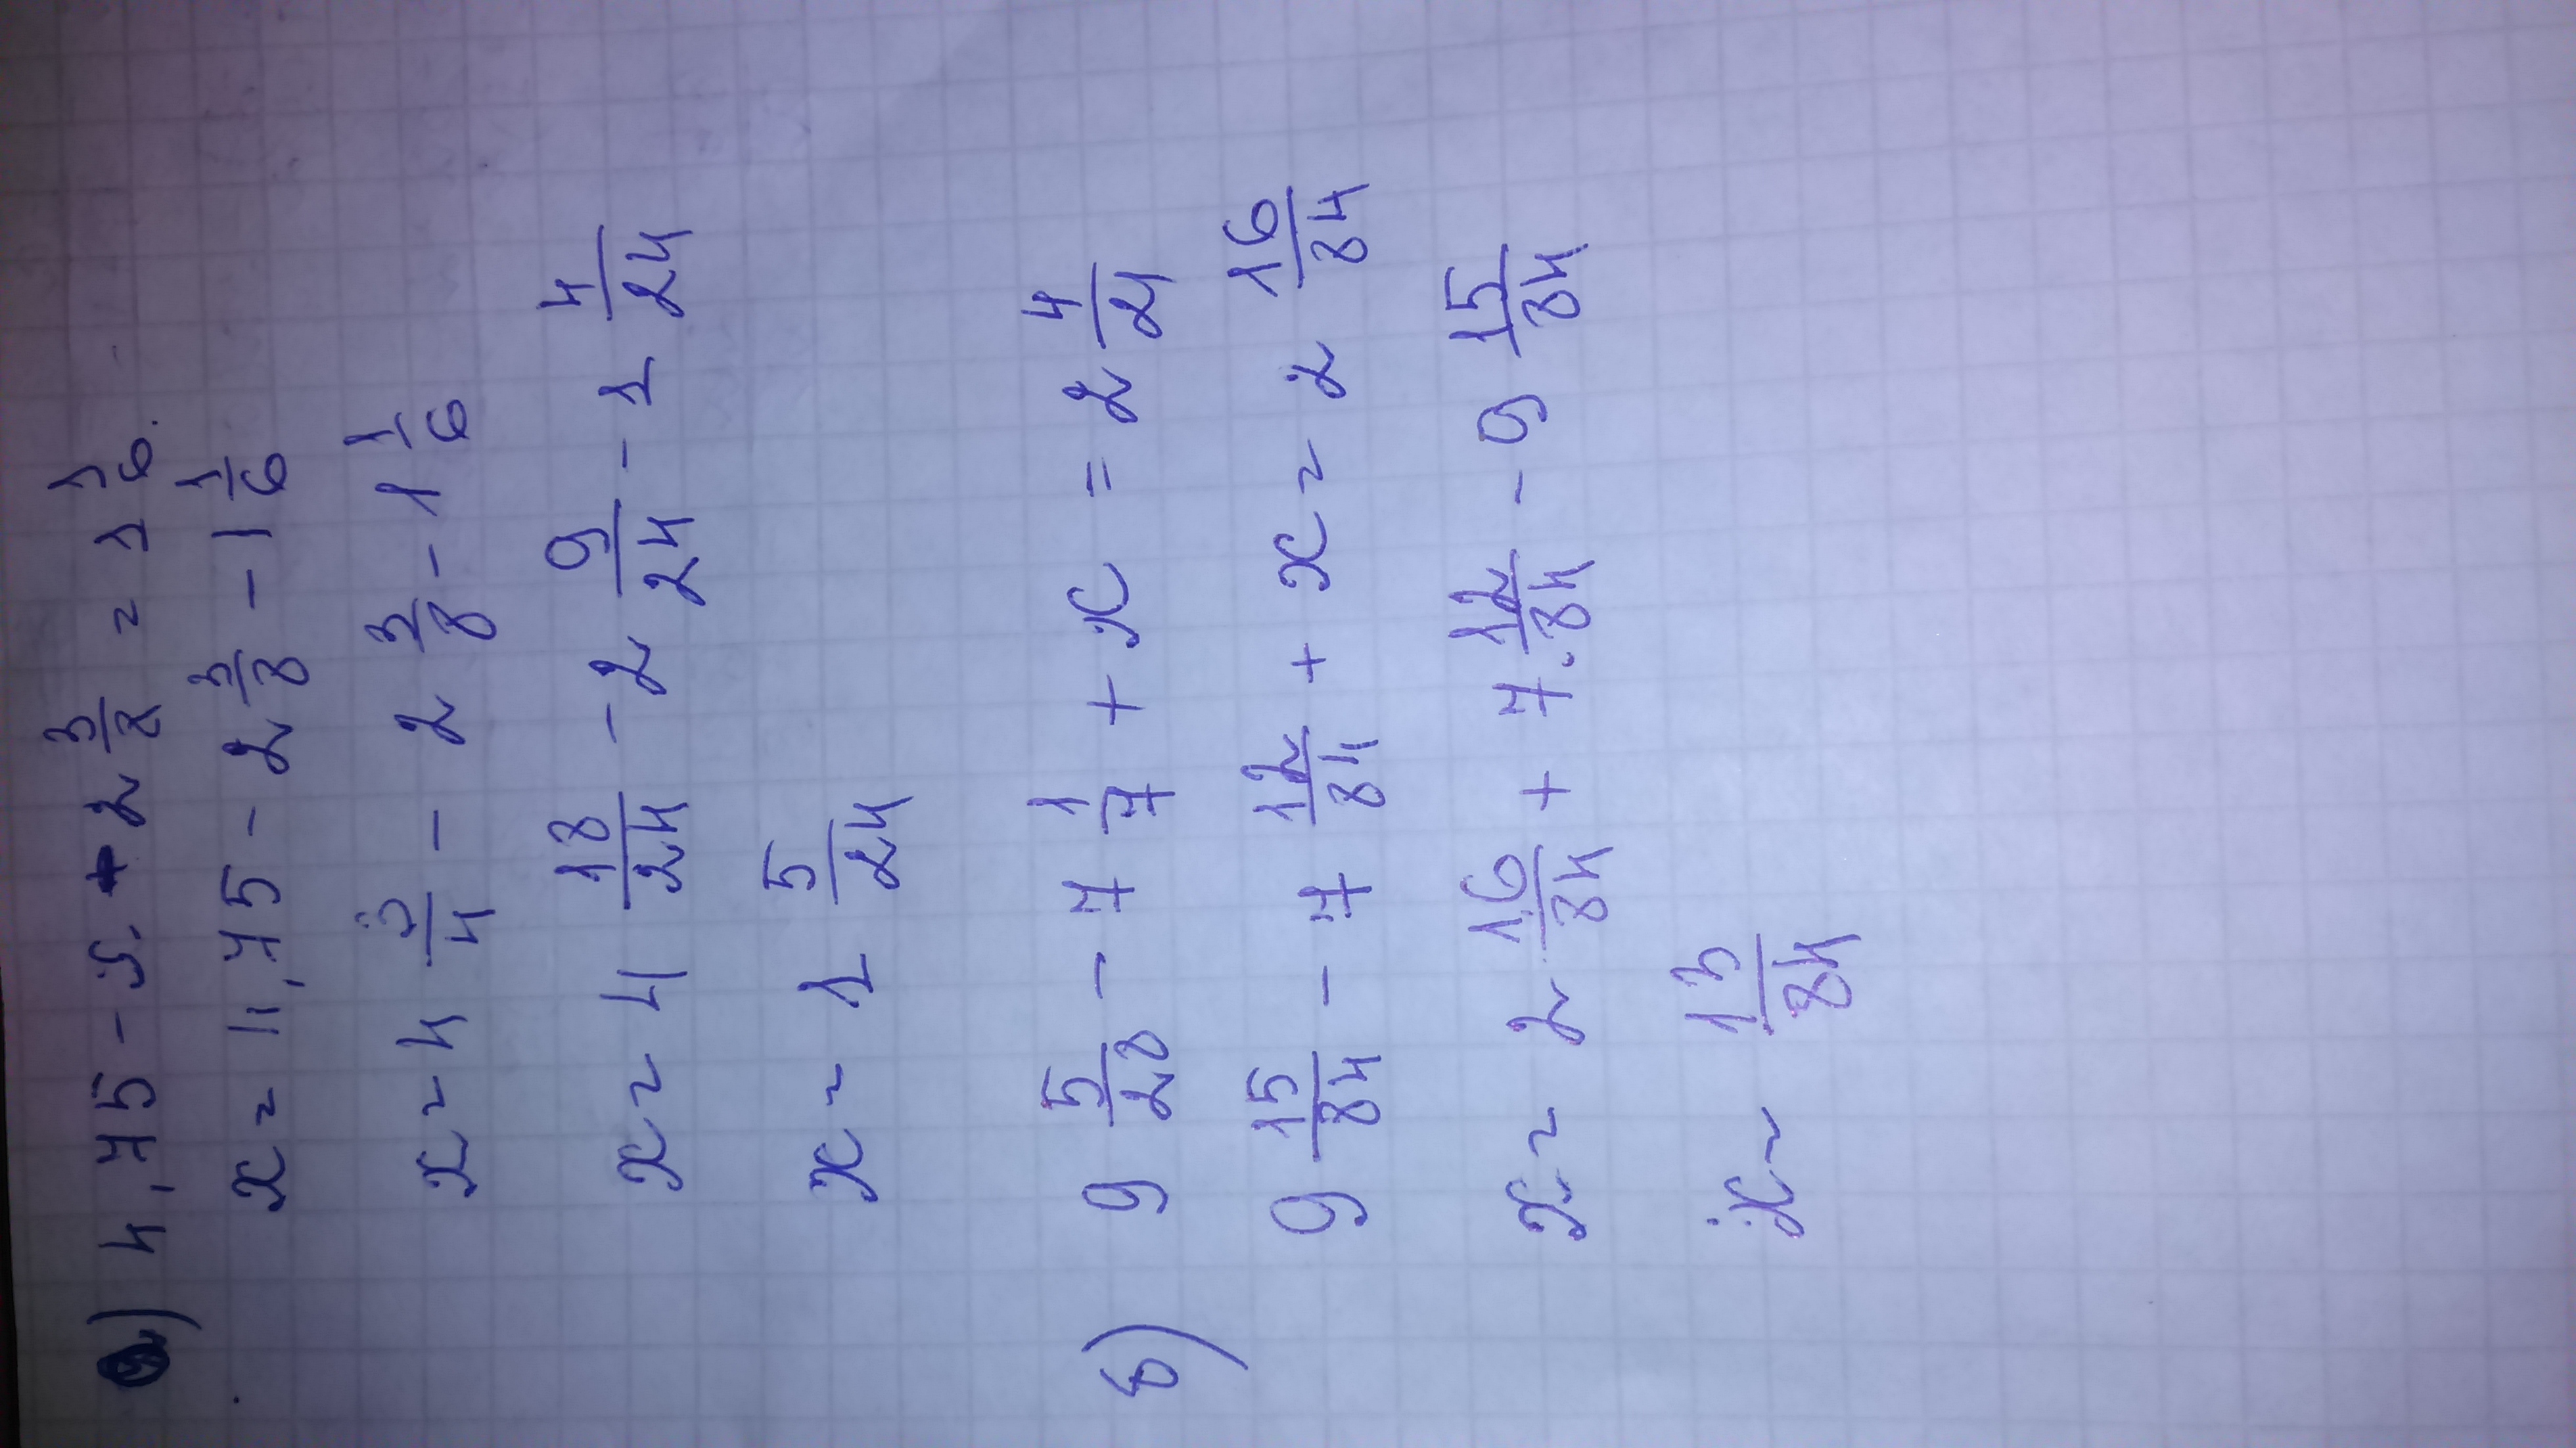 а) 4,75 - x - 2 3/8 = 1 1/6.
x = 4,75 - 2 3/8 - 1 1/6
x = 4 3/4 - 2 3/8 - 1 1/6
x = 4 18/24 - 2 9/24 - 1 4/24
x = 1 5/24
б) 9 5/28 - 7 1/7 + x = 2 4/21
9 15/84 - 7 12/84 + x = 2 16/84
x = 2 16/84 + 7 12/84 - 9 15/84
x = 13/84